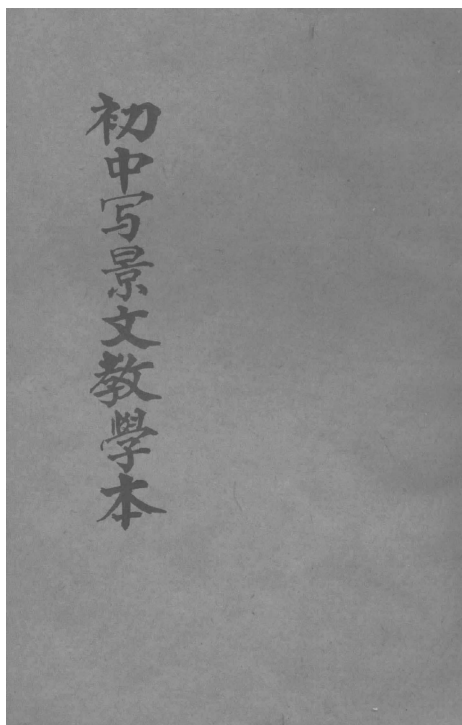 初中写景文教學本